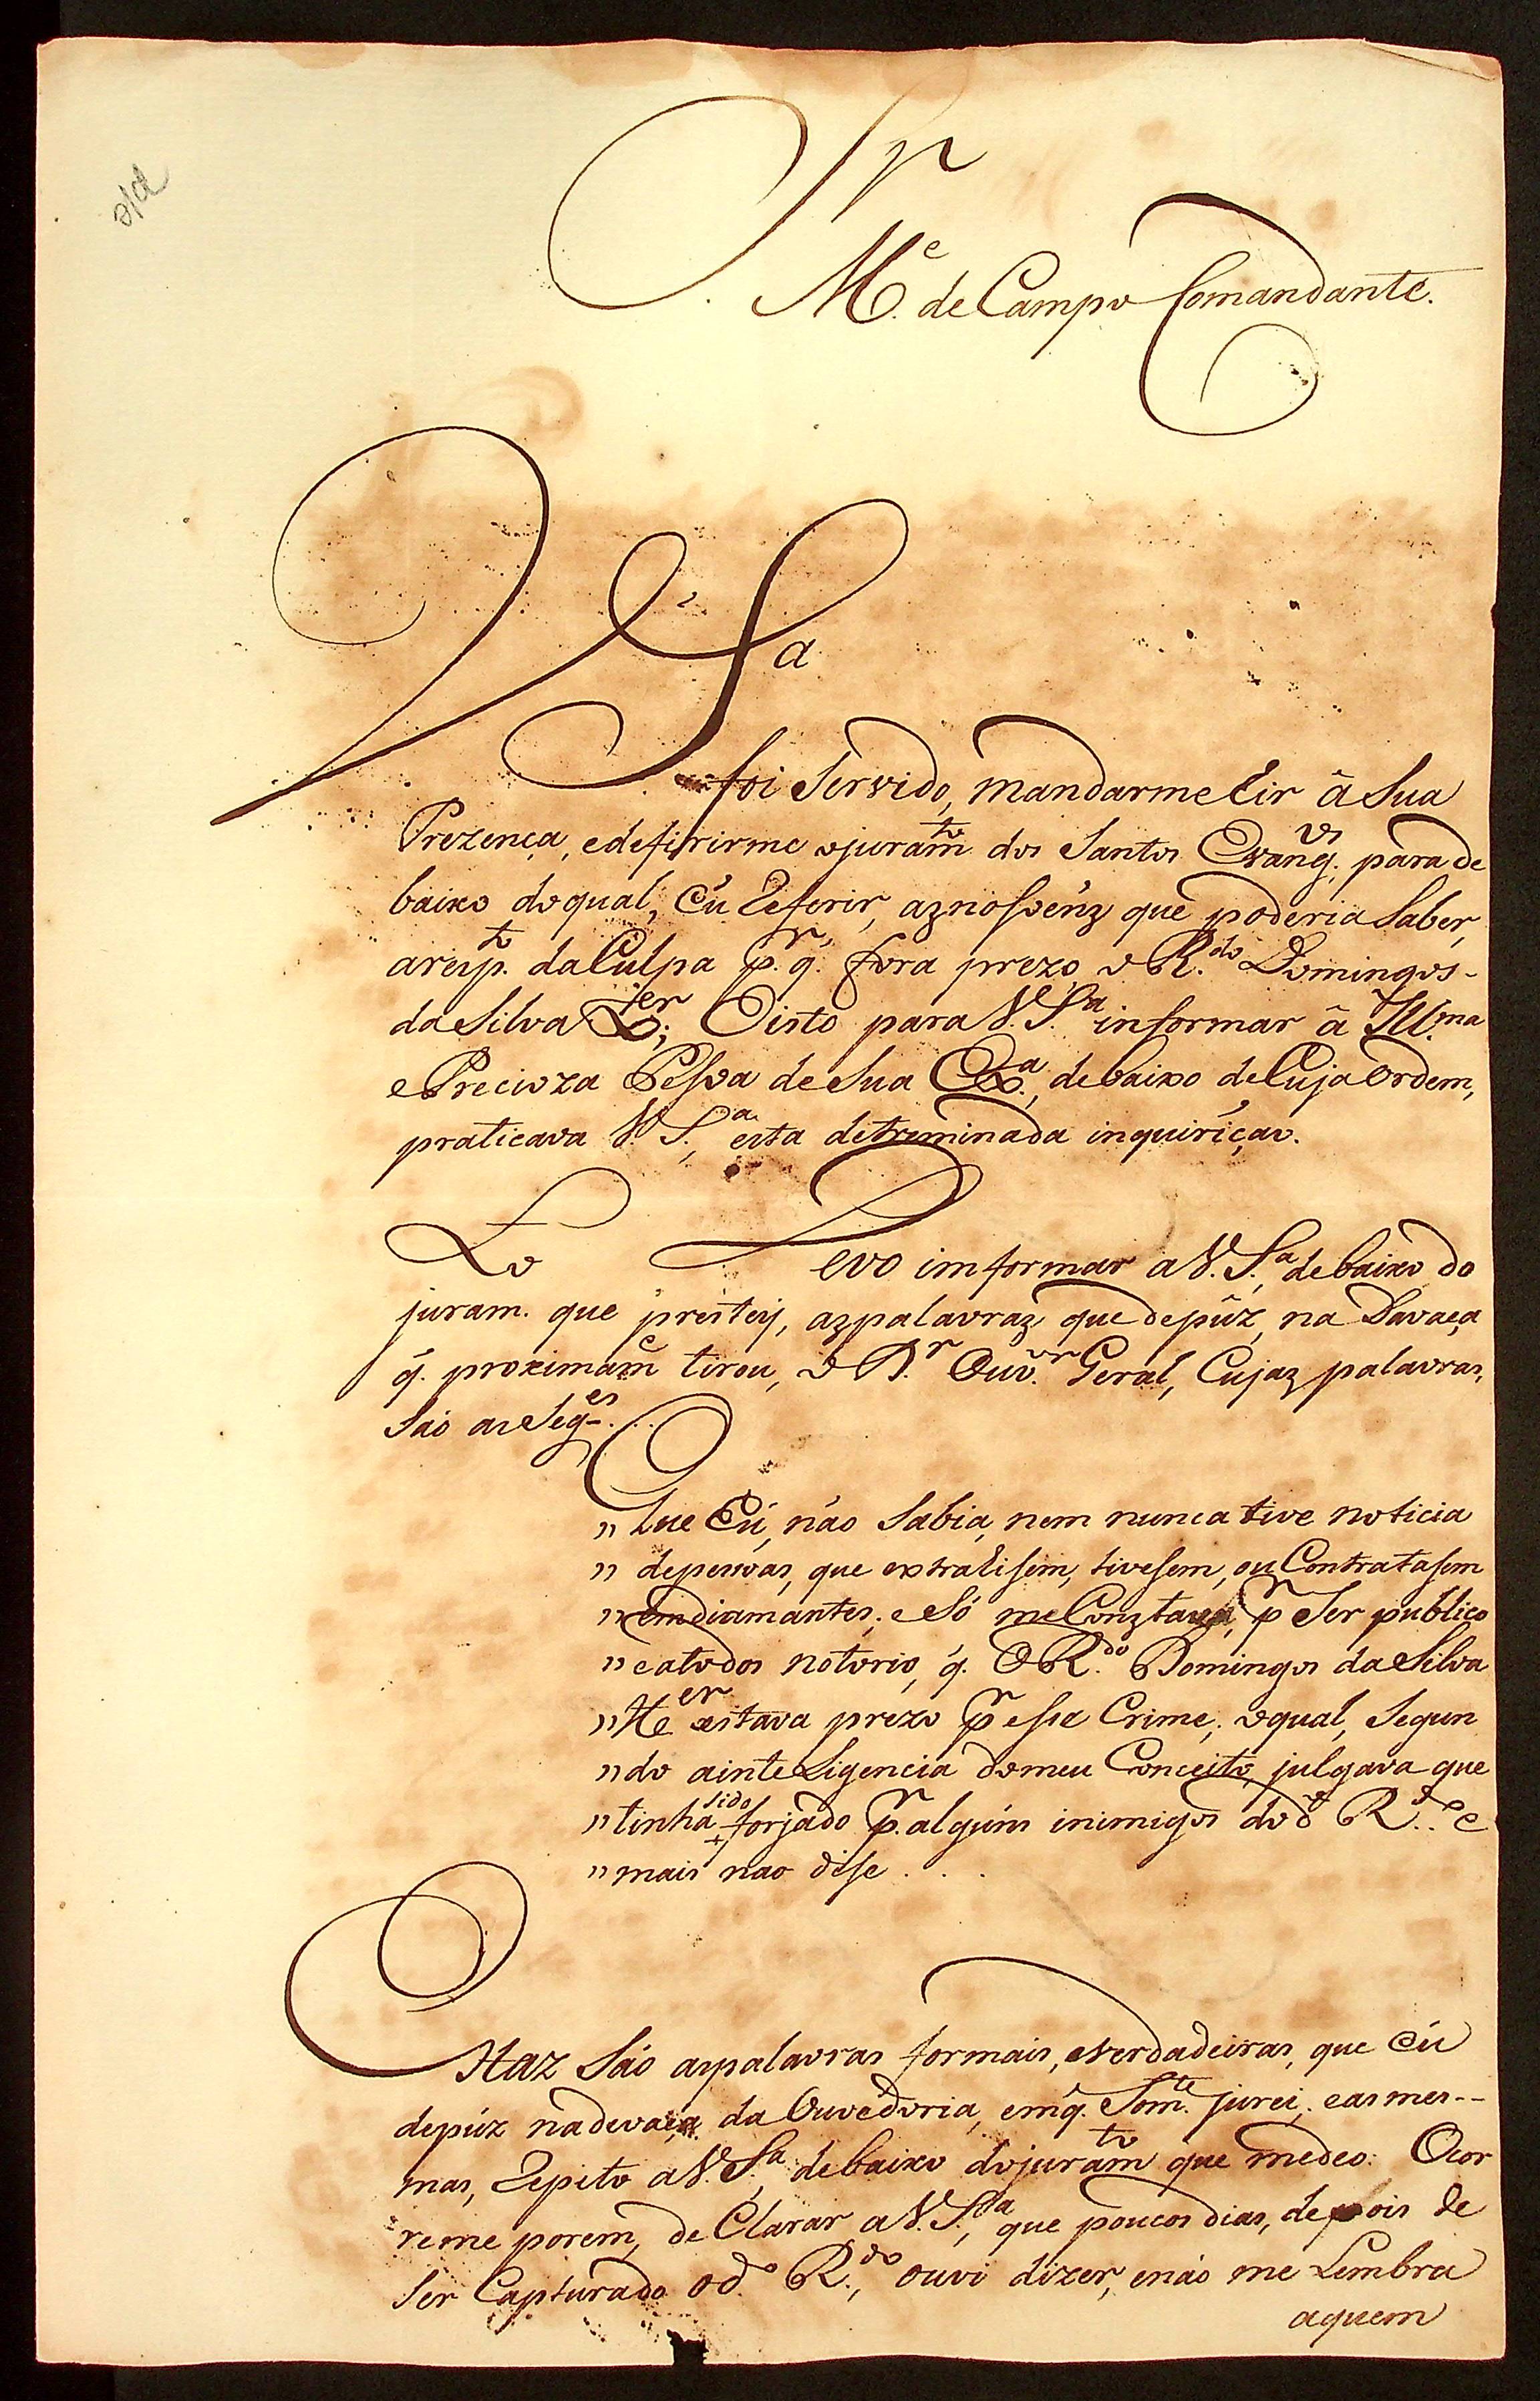 Sr
Me. de Campo Comandante.
V Sa
foi Servido, mandarme Eir â Sua
Prezença, edefirirme ojuramto dos Santos Evangos. para de
baixo doqual, eu Referir, aznosoenz que poderia Saber,
aresp.to da Culpa p.r q. fora prezo o R.do Domingos-
da Silva Xer; Oisto para V. S.a informar â Ill.ma
e Precioza Pesoa de Sua Ex.a, debaixo de Cuja Ordem,
praticava V. S.a, esta determinada inquiriçao.
Devo imformar a V. S.a debaixo do
juram.to que prestey, azpalavraz que depûz, na Davaça
q. proximam.e tirou, o D.r Ouv.or Geral, Cujaz palavras,
Sáo as Seg.es...
" Que Eú, não Sabia, nem nunca tive noticia
" depesoas, que extraLisem, tivesem, ou Contratasem
" emdiamantes; e Só me Conztava, p.r Ser publico
" eatodos notorio, q. O R.do Domingos da Silva
" Xer estava prezo p.r ese Crime; oqual, Segun
" do ainteLigencia domeu Conceito, julgava que
" tinha sido forjado p.r alguns inimigos do d.o R.do e
" mais nao dise . . .
Estaz Sáo aspalavras formais, everdadeiras, que eú
depúz nadevaça da Ouvedoria, emq. Som.te jurei; easmes--
mas, Repito a V. S.a, debaixo dojuramto que medeo. Ocor
reme porem, de Clarar a V. S.a, que poucos dias, depois de
Ser Capturado o d.o R.do, ouvi dizer, enáo me Lembra
aquem